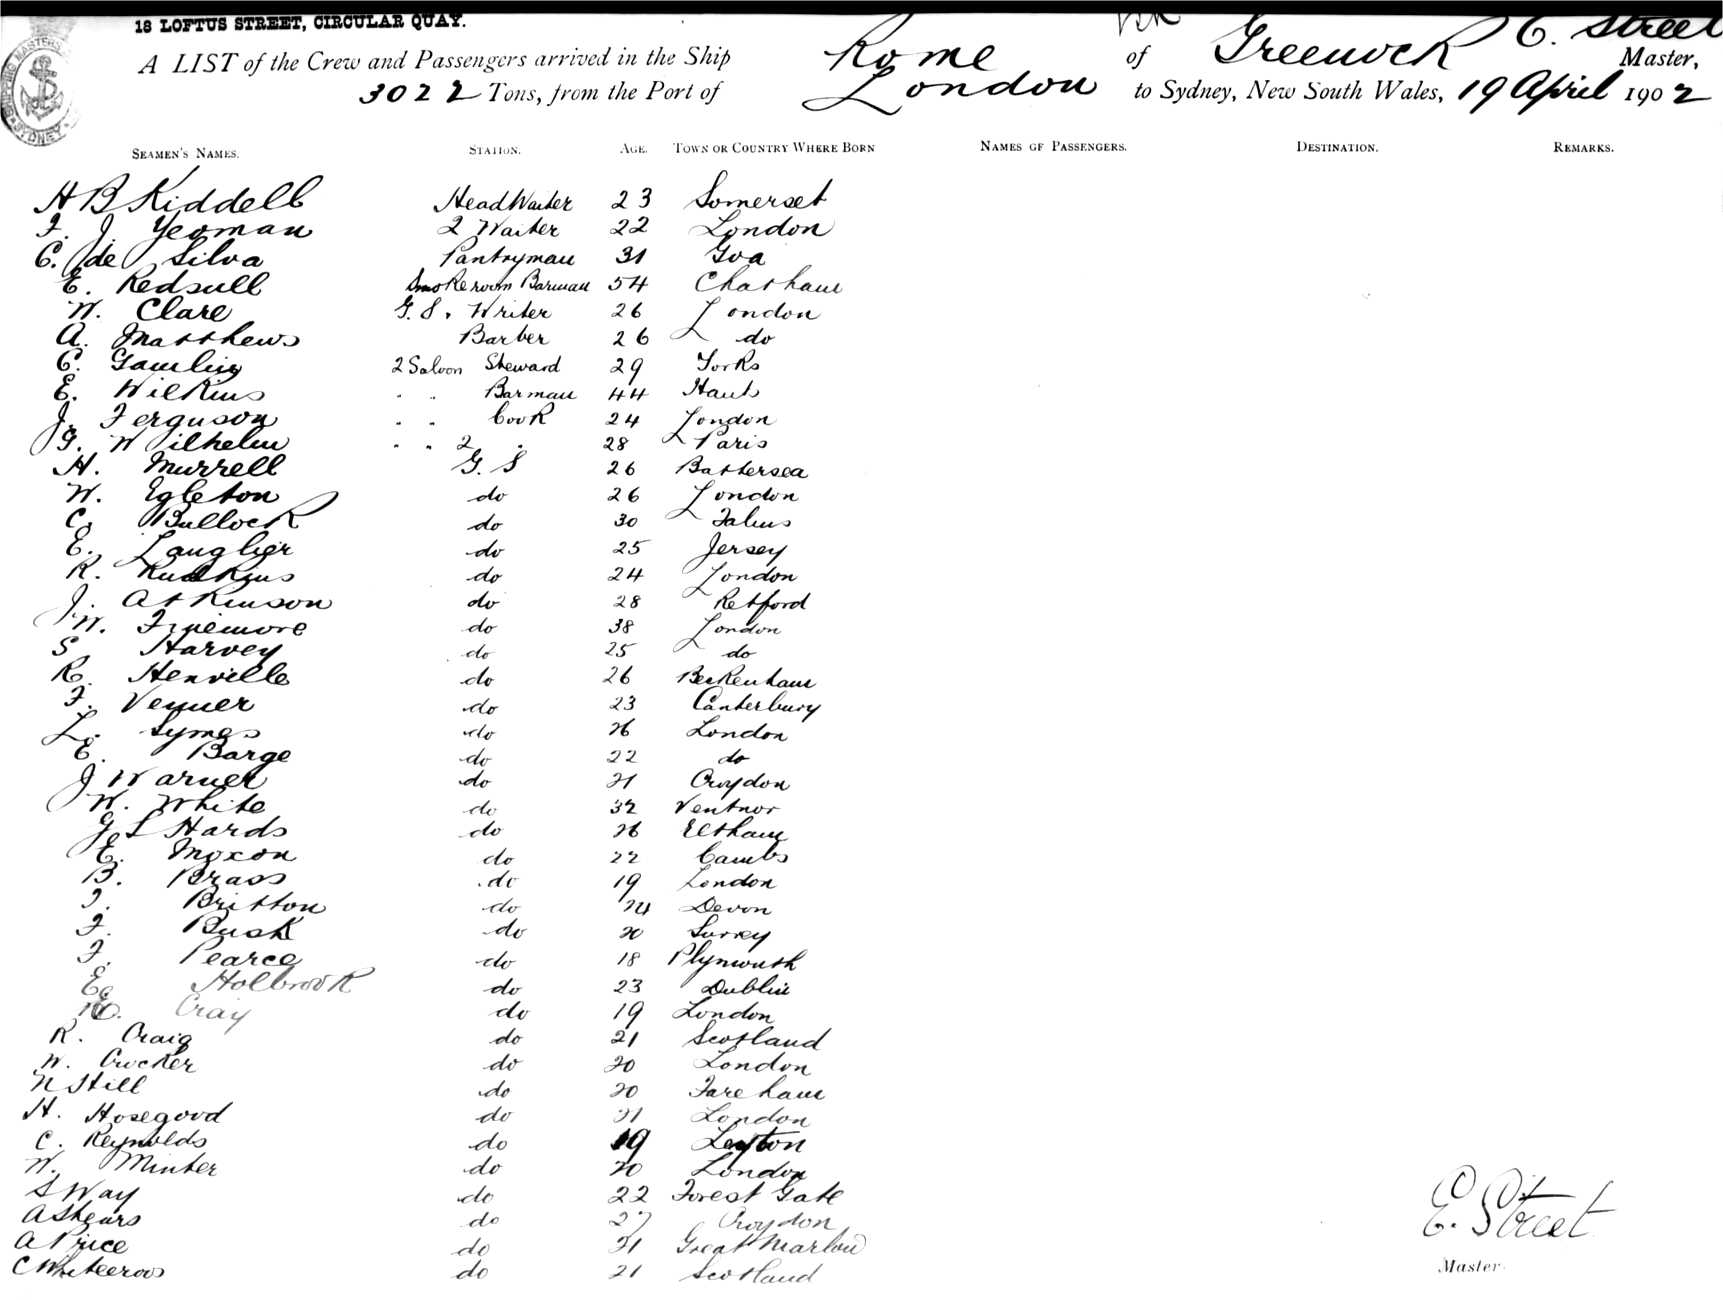 18 LOFTUS STREET, CIRCULAR QUAY.
A LIST of the Crew and Passengers arrived in the Ship Rome of Greenock E. Street Master,
3022 Tons, from the Port of London to Sydney, New South Wales, 19 April 1902
SEAMEN'S NAMES. STATION. AGE. TOWN OR COUNTRY WHERE BORN NAMES OF PASSENGERS. DESTINATION. REMARKS.
H B Kiddell Head Waiter 23 Somerset
F. J. Yeoman 2 Waiter 22 London
C. de Silva Pantryman 31 Goa
E. Redsull Smokeroom Barman 54 Chatham
W. Clare G. S. Writer 26 London
A. Matthews Barber 26 do
C. Gamling 2 Saloon Steward 29 Yorks
E. Wilkins " " Barman 44 Hants
J. Ferguson " " Cook 24 London
G. Wilhelm " " 2 " 28 Paris
H. Murrell G. S 26 Battersea
W. Egleton do 26 London
C. Bullock do 30 
E. Langlier do 25 Jersey
R. Rudkins do 24 London
J. Atkinson do 28 Retford
W. Finemore do 38 London
S. Harvey do 25 do
R. Henville do 26 Beckenham
F. Venner do 23 Canterbury
L. Symes do 26 London
E. Barge do 22 do
J Warner do 21 Croydon
W. White do 32 Ventnor
G L Hards do 26 Eltham
E. Moxon do 22 Cambs
B. Brass do 19 London
J. Britton do 24 Devon
F. Busk do 20 Surrey
F. Pearce do 18 Plymouth
E. Holbrook do 23 Dublin
Cray do 19 London
R. Craig do 21 Scotland
W. Crocker do 20 London
N Still do 20 Fareham
H. Hosegood do 21 London
C. Reynolds do 19 Leyton
W. Minter do 20 London
S Way do 22 Forest Gate
A Shears do 27 Croydon
A Price do 21 Great Marlow
C Whitecross do 21 Scotland
E. Street
Master.